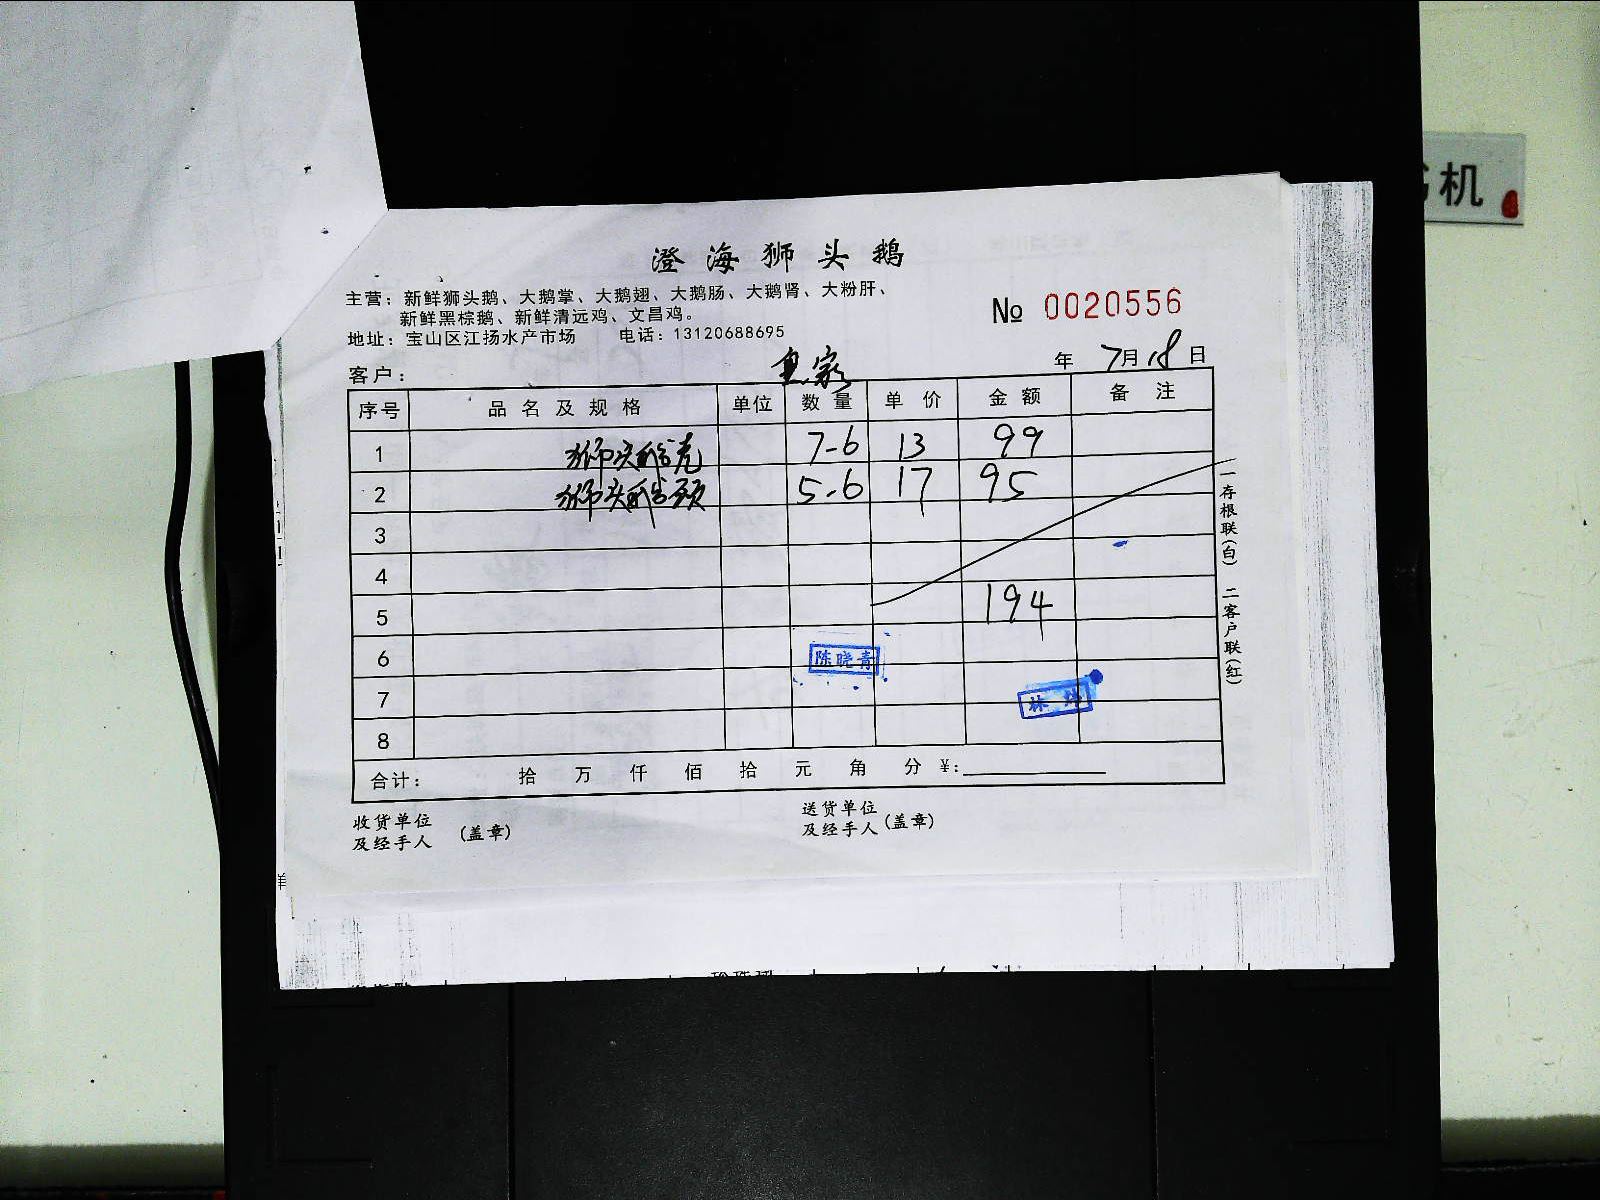 机
澄海狮头鹅
主营：新鲜狮头鹅、大鹅掌、大鹅翅、大鹅肠、大鹅肾、大粉肝、
新鲜黑棕鹅、新鲜清远鸡、文昌鸡。
№ 0020556
地址：宝山区江扬水产市场 电话：13120688695
客户：
年 7月18日
序号 品名及规格 单位 数量 单价 金额 备注
1 狮头鹅壳 7-6 13 99
2 狮头鹅颈 5-6 17 95
3
4
5 194
6 陈晓青
7 林
8
合计： 拾 万 仟 佰 拾 元 角 分 ¥:
收货单位
及经手人 (盖章)
送货单位
及经手人 (盖章)
一存根联(白) 二客户联(红)